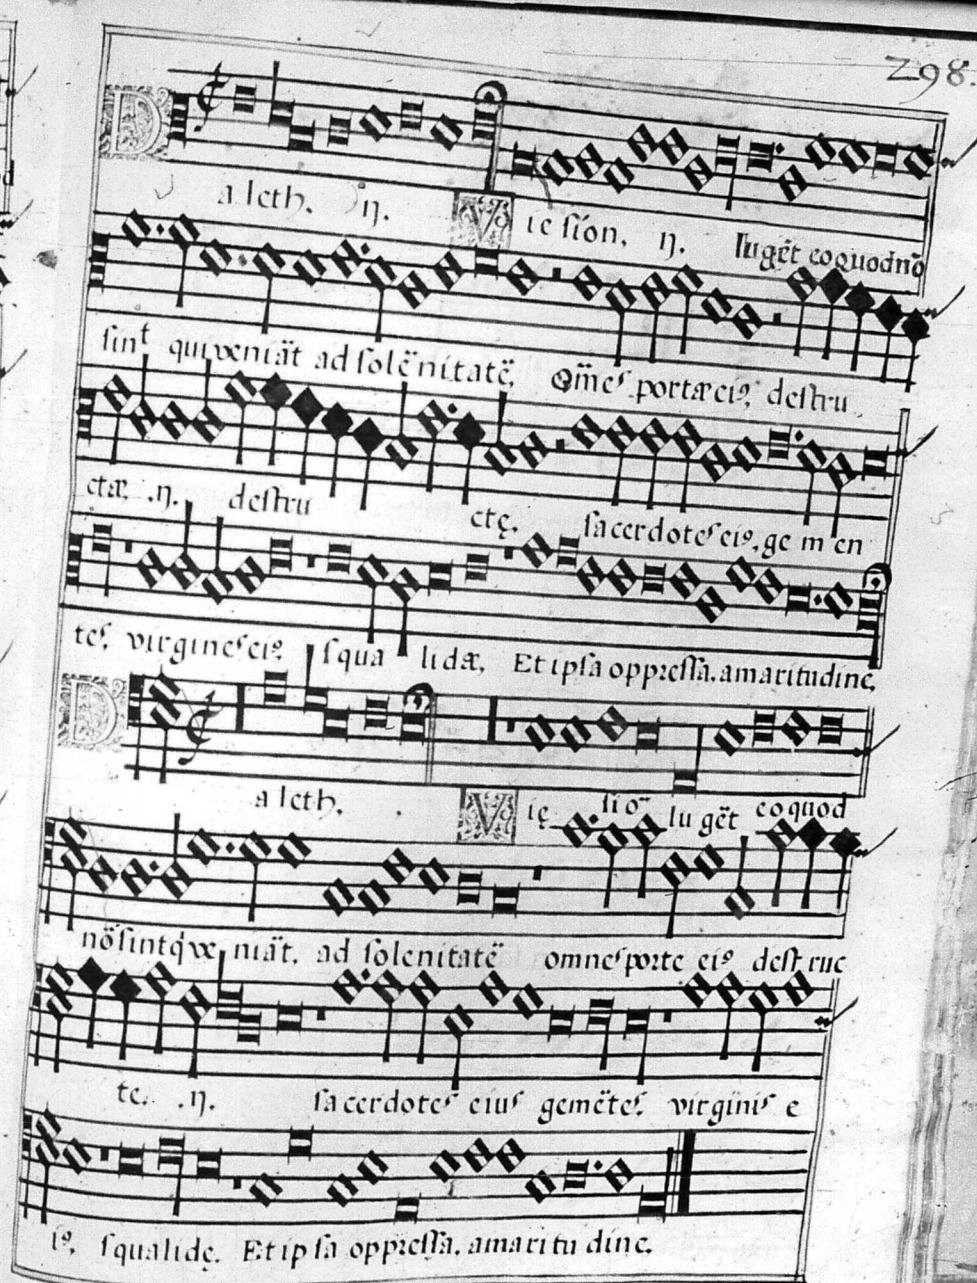 298.
D aleth. ij. V ie sion. ij. lugēt eo quod nō
sint qui veniāt ad solēnitatē, Om̄es portæ eiꝰ, destru
ctæ, .ij. destru ctę. sacerdotes eiꝰ. ge m en
tes, virgines eiꝰ squa lidæ, Et ipsa oppressa. amaritudine,
D aleth. V ię siō lu gēt eo quod
nō sint q̇ ve niāt. ad solenitatē omnes porte eiꝰ destruc
te. .ij. sacerdotes eius gemētes. virginis e
iꝰ. squalidę. Et ip sa oppressa. amaritu dine.